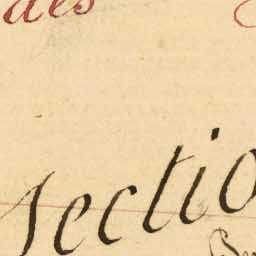 des
Sectio